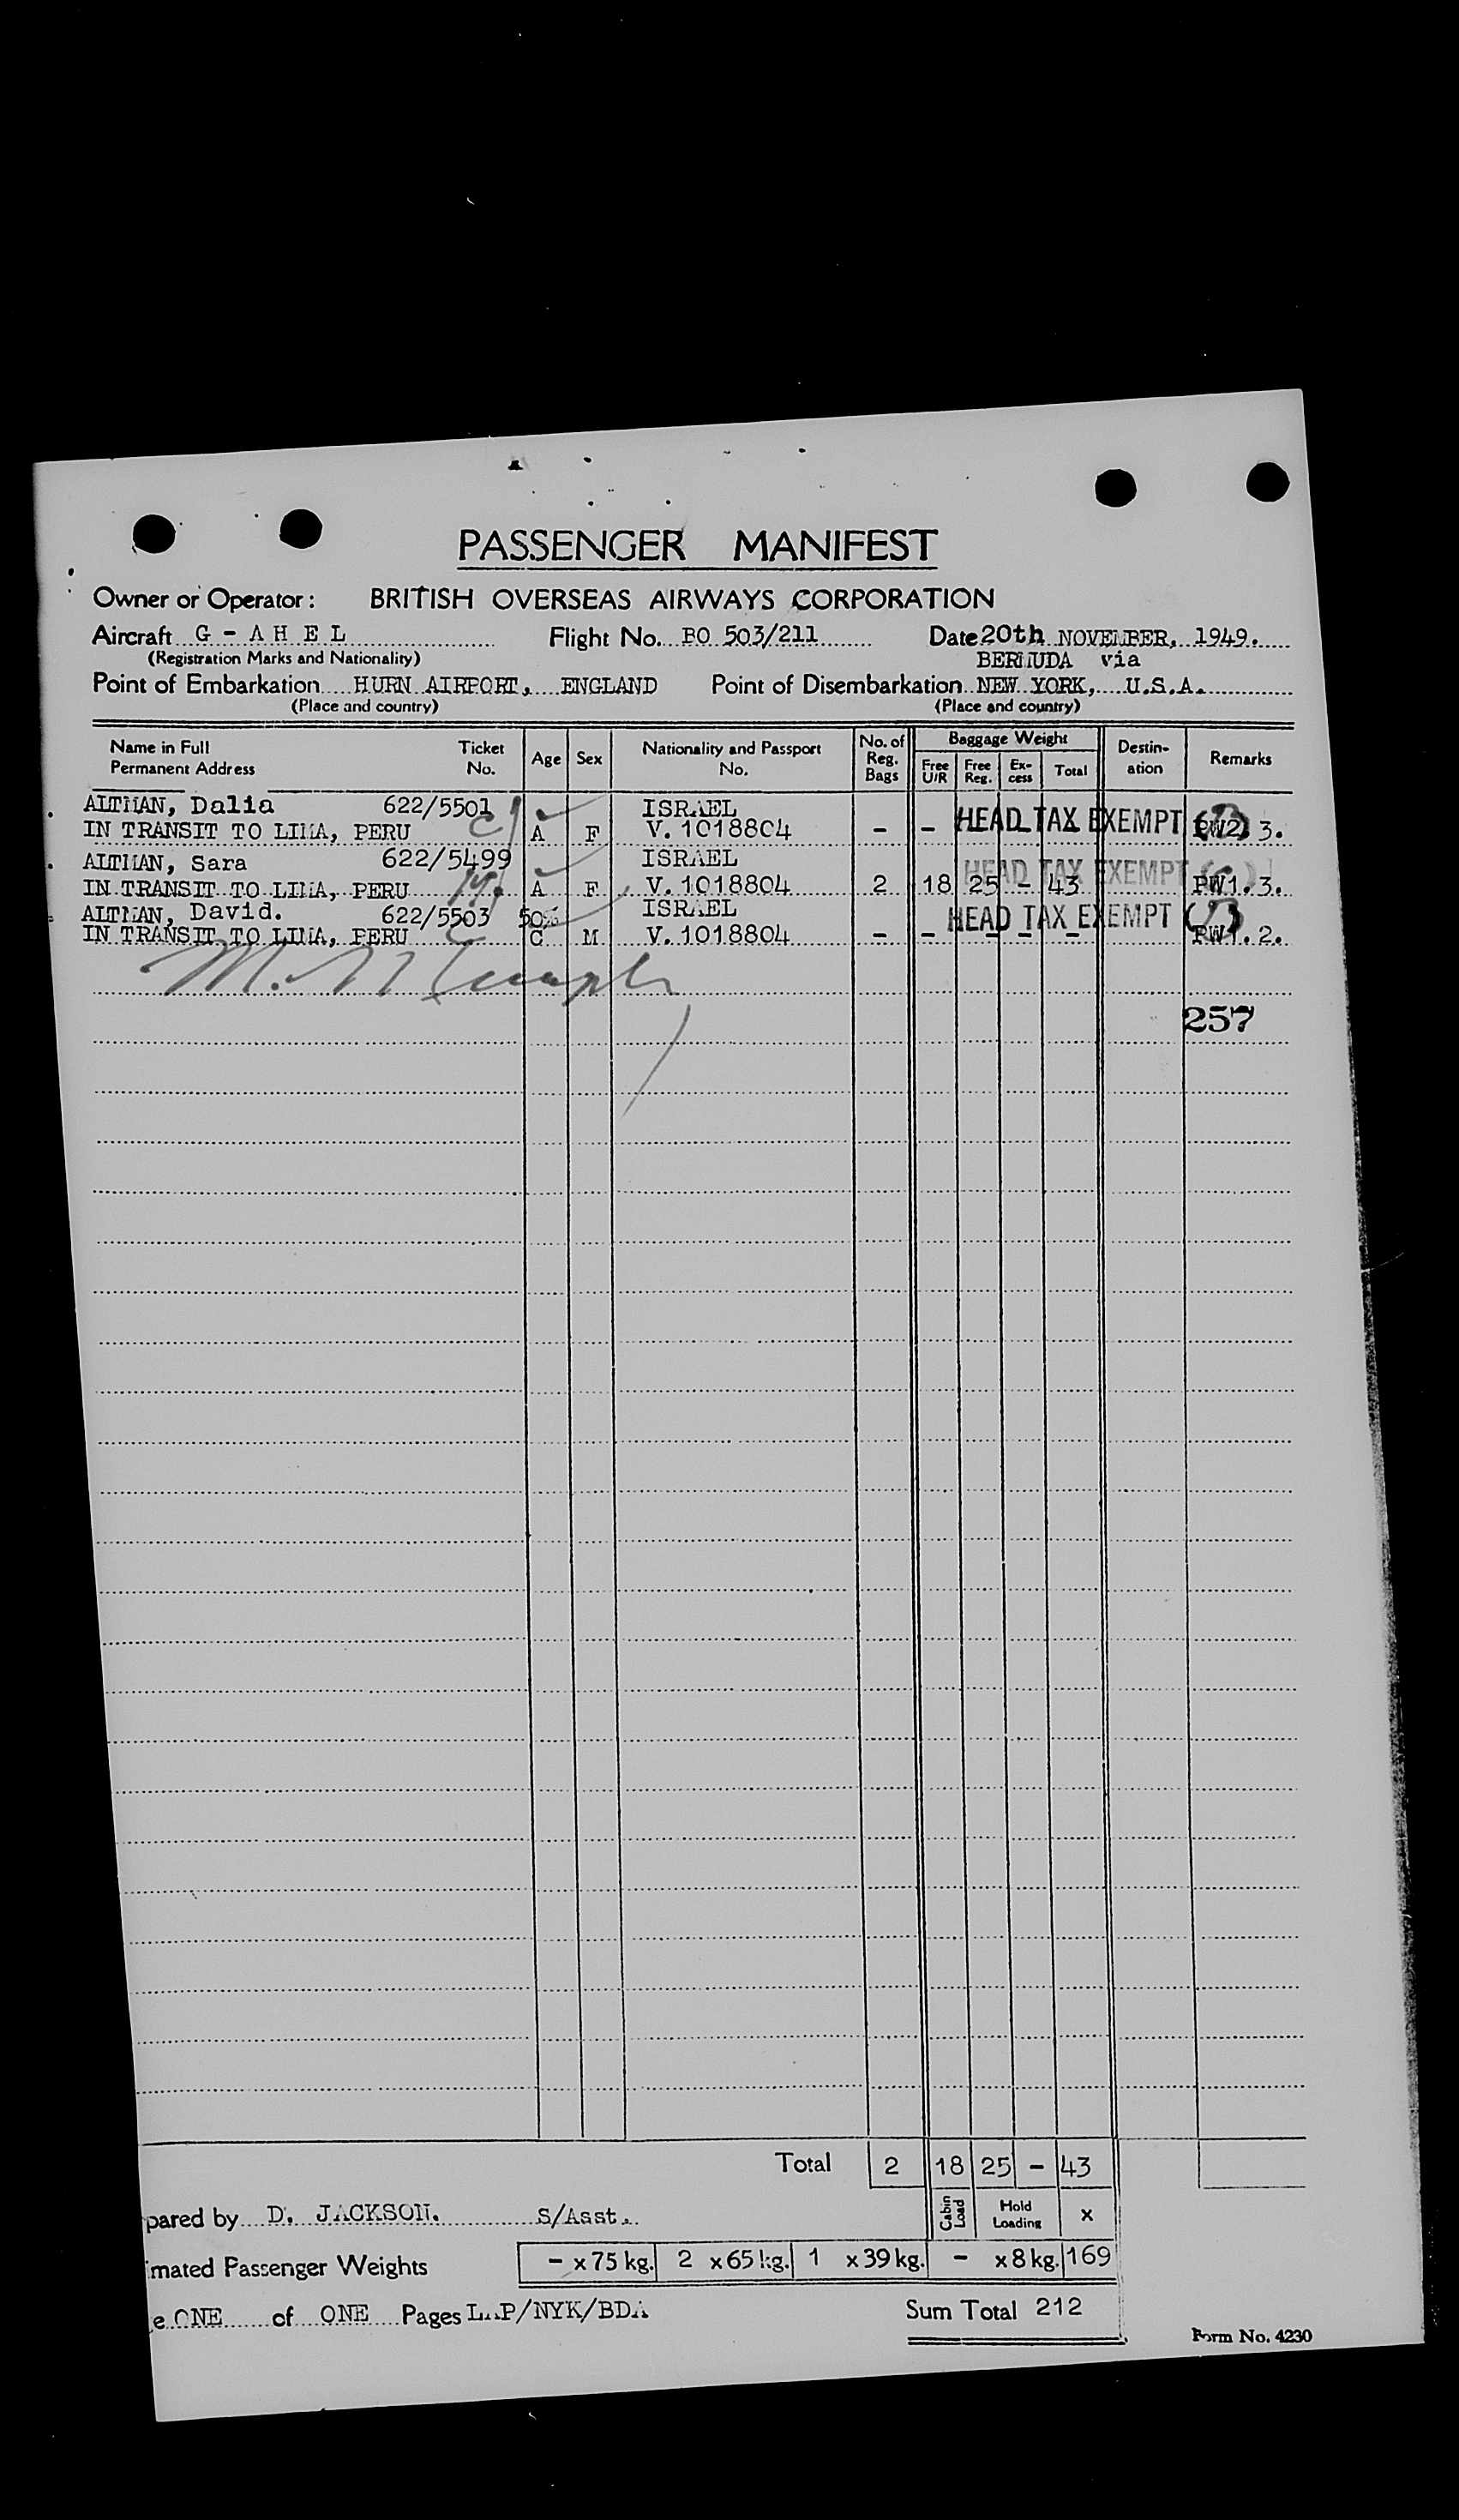 PASSENGER MANIFEST
Owner or Operator: BRITISH OVERSEAS AIRWAYS CORPORATION
Aircraft G - A H E L Flight No. BO 503/211 Date 20th NOVEMBER, 1949.
(Registration Marks and Nationality) BERMUDA via
Point of Embarkation HURN AIRPORT, ENGLAND Point of Disembarkation NEW YORK, U.S.A.
(Place and country) (Place and country)
Name in Full Permanent Address Ticket No. Age Sex Nationality and Passport No. No. of Reg. Bags Baggage Weight Free U/R Free Reg. Ex-cess Total Destin-ation Remarks
ALTMAN, Dalia 622/5501 ISRAEL HEAD TAX EXEMPT
IN TRANSIT TO LIMA, PERU C A F V. 1018804 - - - - - PW2. 3.
ALTMAN, Sara 622/5499 ISRAEL HEAD TAX EXEMPT
IN TRANSIT TO LIMA, PERU A F V. 1018804 2 18 25 - 43 PW1. 3.
ALTMAN, David. 622/5503 50% ISRAEL HEAD TAX EXEMPT
IN TRANSIT TO LIMA, PERU C C M V. 1018804 - - - - - PW1. 2.
257
Total 2 18 25 - 43
pared by D. JACKSON. S/Asst. Cabin Load Hold Loading x
imated Passenger Weights - x 75 kg. 2 x 65 kg. 1 x 39 kg. - x 8 kg. 169
e ONE of ONE Pages LAP/NYK/BDA Sum Total 212
Form No. 4230